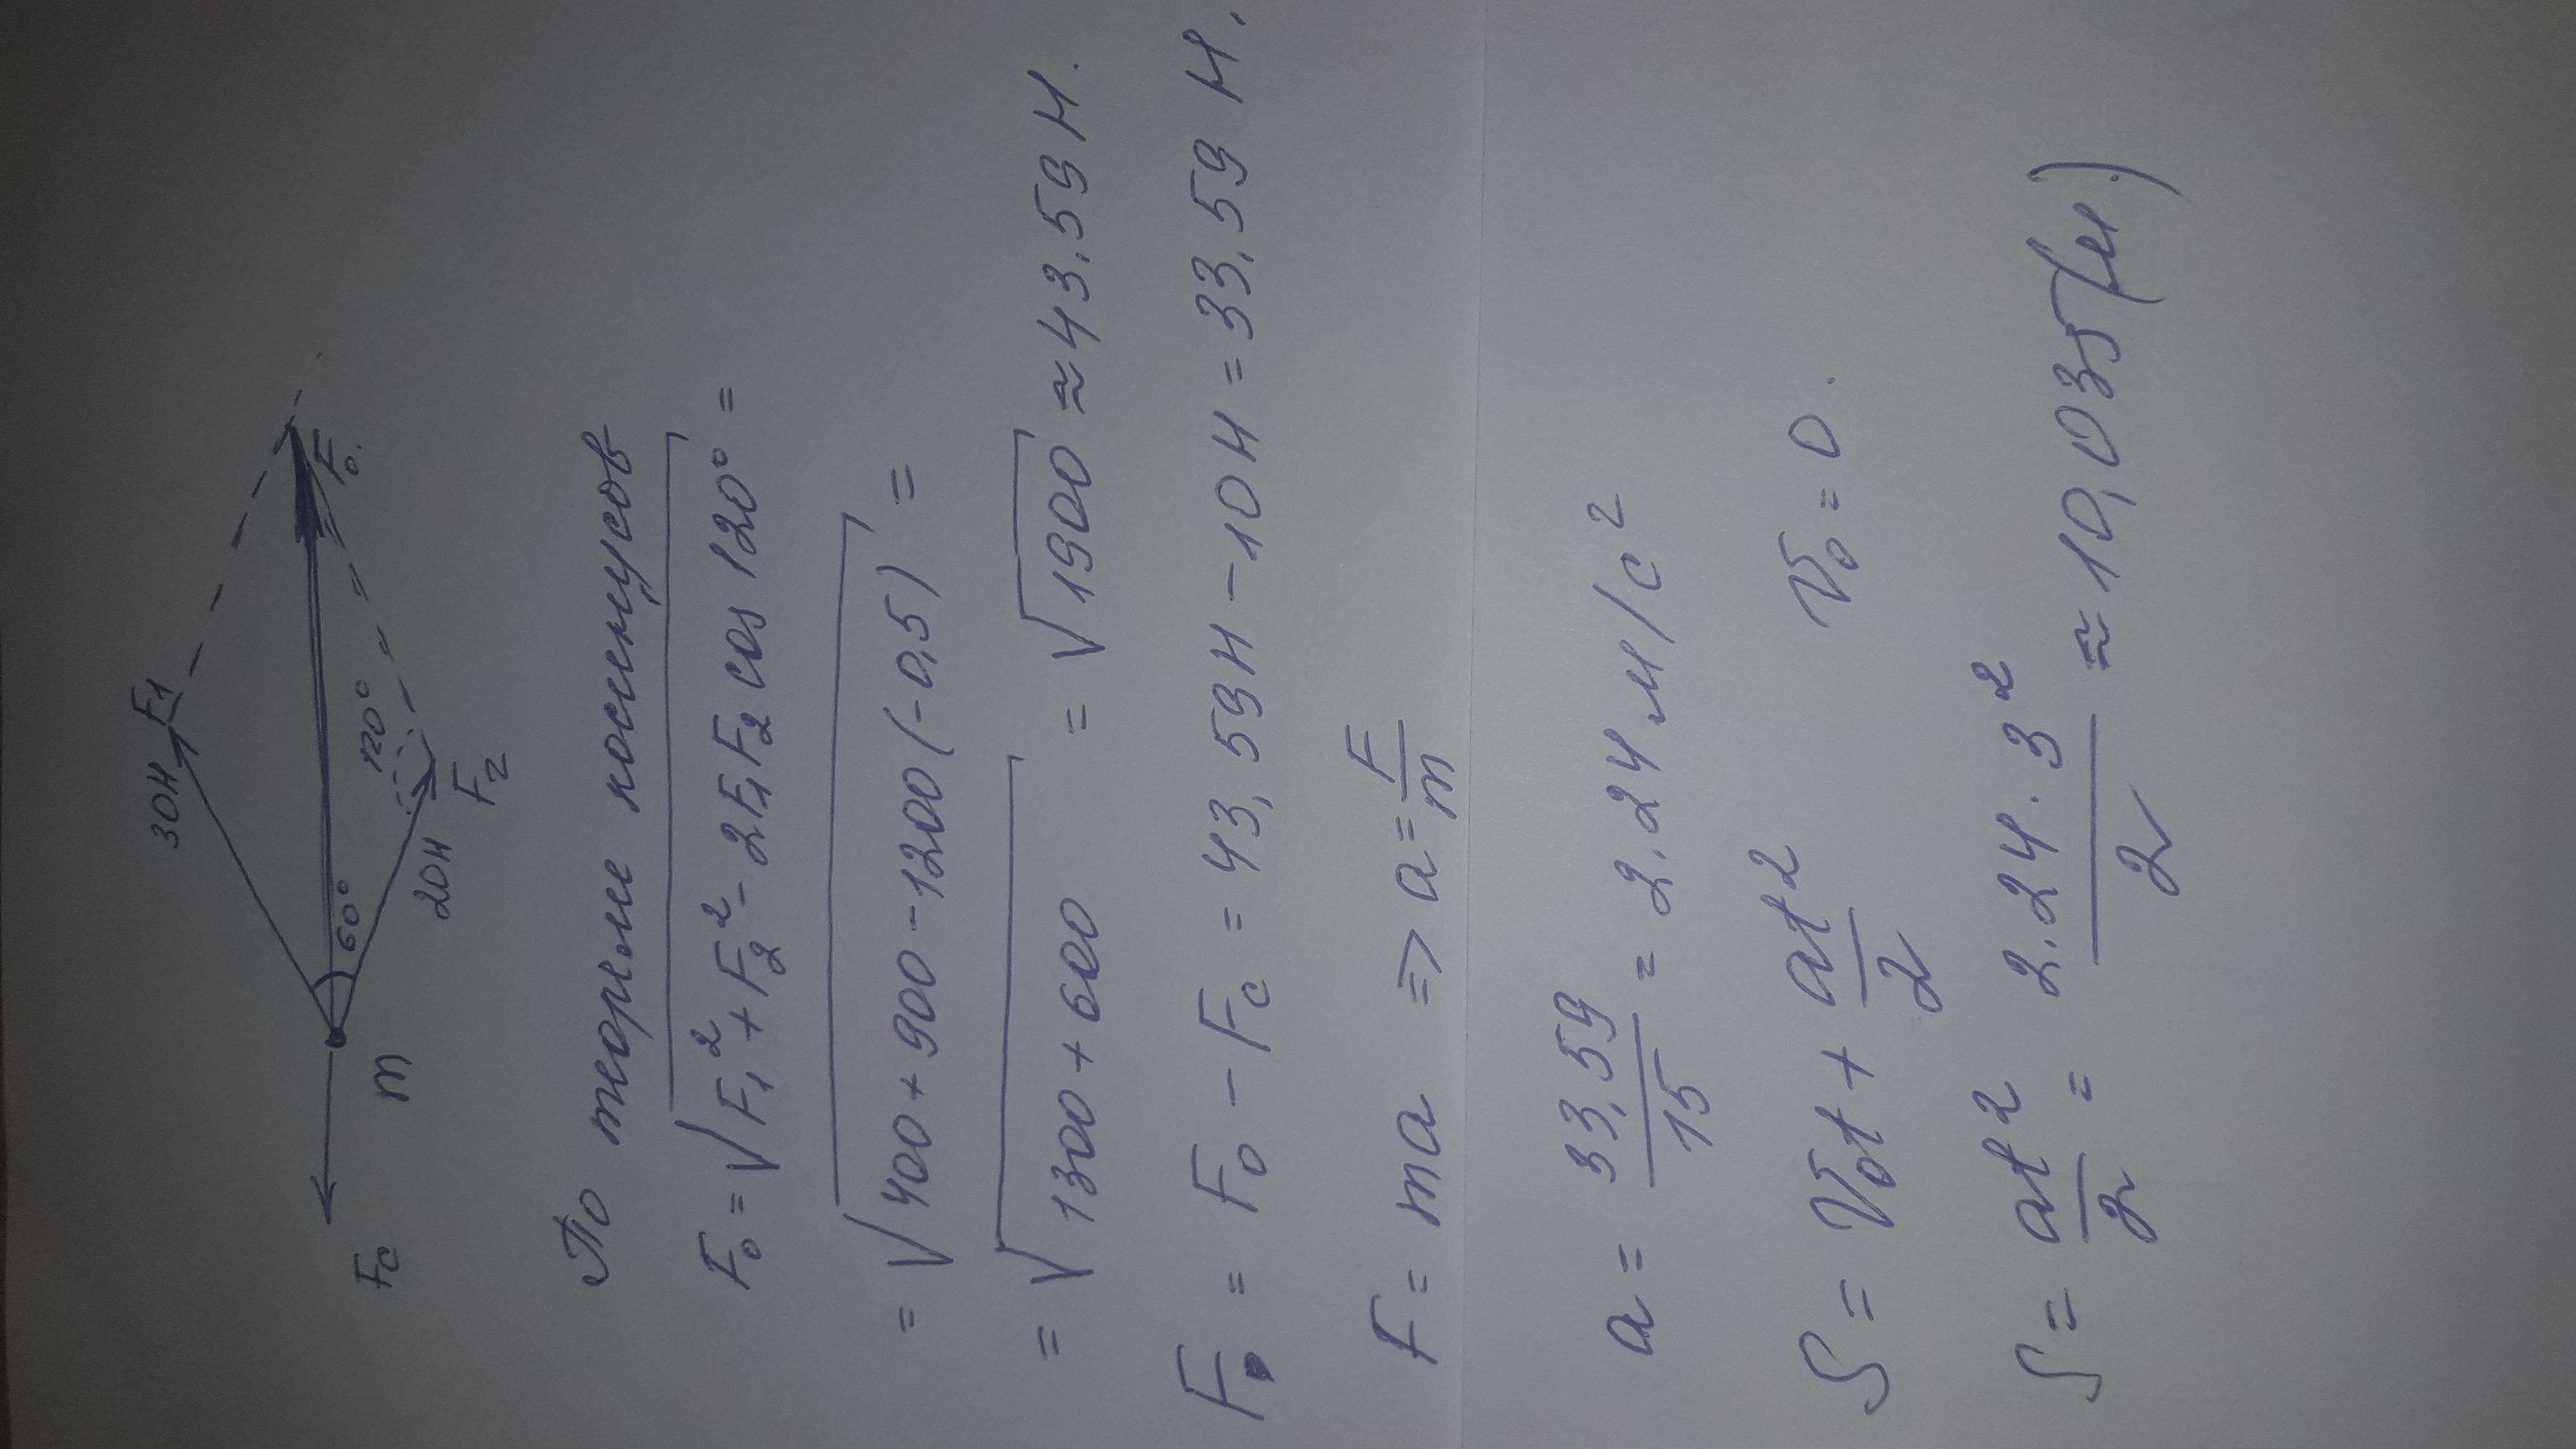 30Н F1
60°
120°
20Н
F2
F0.
Fc
m
По теореме косинусов
F0 = √F1² + F2² - 2F1F2 cos 120° =
= √400 + 900 - 1200 (-0,5) =
= √1300 + 600 = √1900 ≈ 43,59 Н.
F = F0 - Fc = 43,59Н - 10Н = 33,59 Н.
F = ma => a = F/m
a = 33,59/15 = 2,24 м/с²
S = V0t + at²/2 V0 = 0.
S = at²/2 = 2,24 · 3²/2 ≈ 10,035 (м)